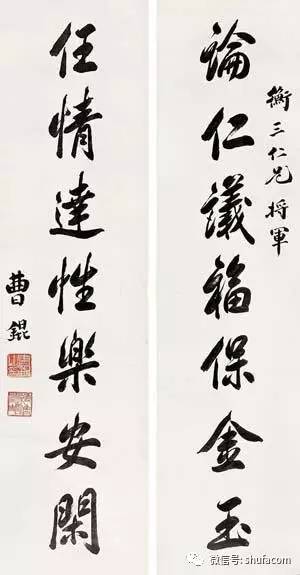 衡三仁兄将軍
論仁議福保金玉
任情達性樂安閑
曹錕
微信号: shufacom